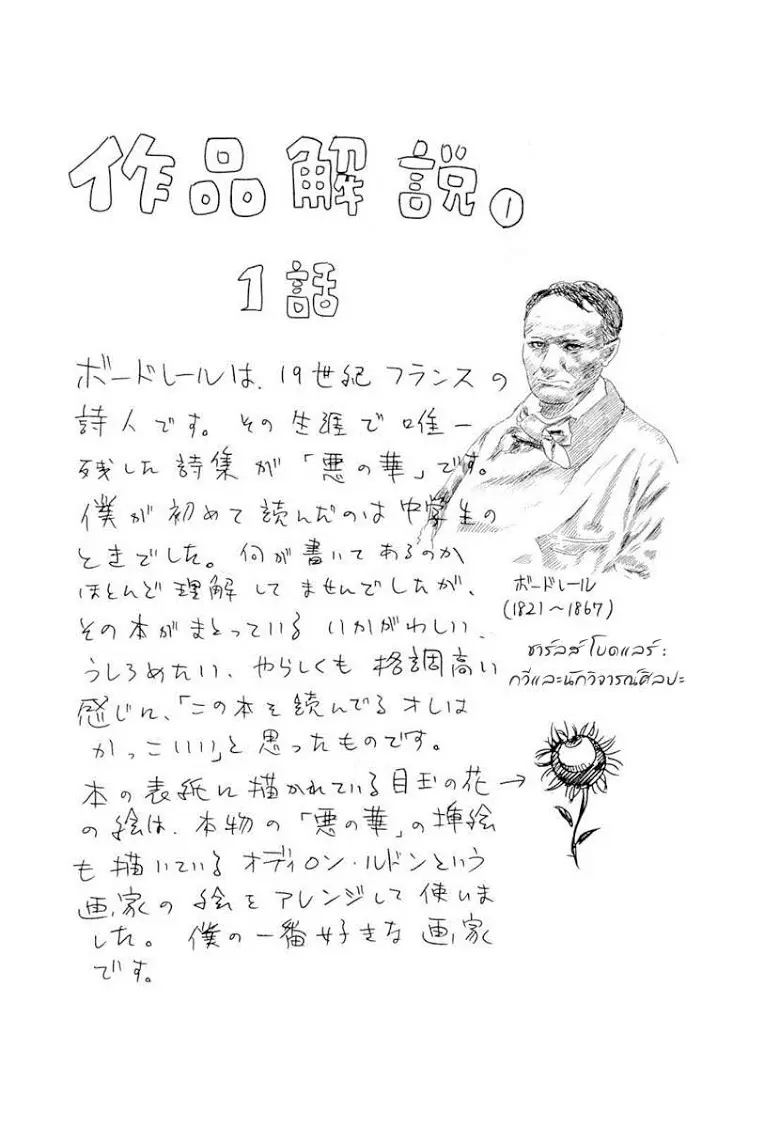 作品解説①
1話
ボードレールは、19世紀フランスの
詩人です。その生涯で唯一
残した詩集が「悪の華」です。
僕が初めて読んだのは中学生の
ときでした。何が書いてあるのか
ほとんど理解してませんでしたが、
その本がまとっているいかがわしい、
うしろめたい、やらしくも格調高い
感じに、「この本を読んでるオレは
かっこいい」と思ったものです。
本の表紙に描かれている目玉の花→
の絵は、本物の「悪の華」の挿絵
も描いているオディロン・ルドンという
画家の絵をアレンジして使いま
した。僕の一番好きな画家
です。
ボードレール
(1821～1867)
ชาร์ลส์ โบดแลร์ :
กวีและนักวิจารณ์ศิลปะ